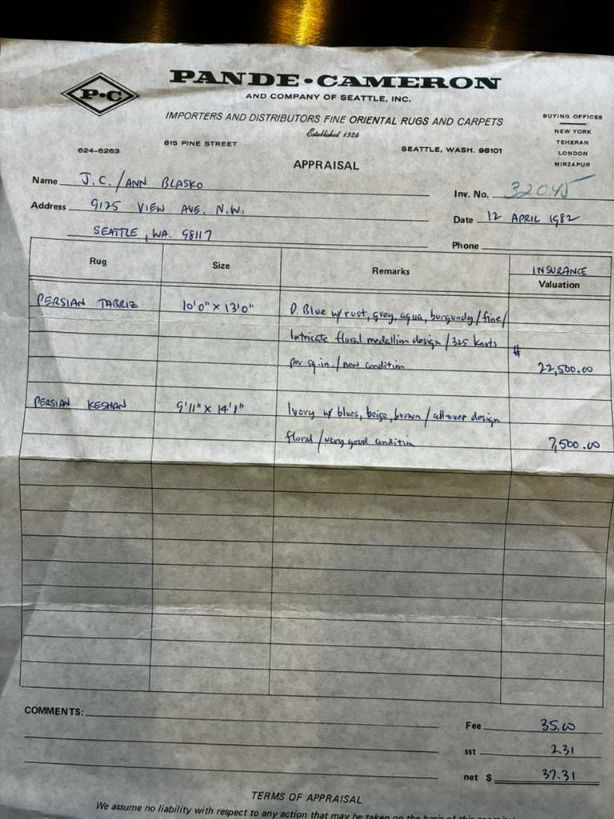 P•C
PANDE•CAMERON
AND COMPANY OF SEATTLE, INC.
IMPORTERS AND DISTRIBUTORS FINE ORIENTAL RUGS AND CARPETS
Established 1924
624-6263
815 PINE STREET
SEATTLE, WASH. 98101
BUYING OFFICES
NEW YORK
TEHERAN
LONDON
MIRZAPUR
APPRAISAL
Name J.C./ANN BLASKO
Inv. No. 32045
Address 9125 VIEW AVE. N.W.
Date 12 APRIL 1982
SEATTLE, WA. 98117
Phone
Rug Size Remarks INSURANCE Valuation
PERSIAN TABRIZ 10'0" x 13'0" D. Blue w/rust, grey, aqua, burgundy/fine/
Intricate floral medallion design/325 knots
per sq. in./new condition # 22,500.00
PERSIAN KESHAN 9'11" x 14'1" Ivory w/ blues, beige, brown/allover design
floral/very good condition 7,500.00
COMMENTS:
Fee 35.00
sst 2.31
net $ 37.31
TERMS OF APPRAISAL
We assume no liability with respect to any action that may be taken on the basis of this